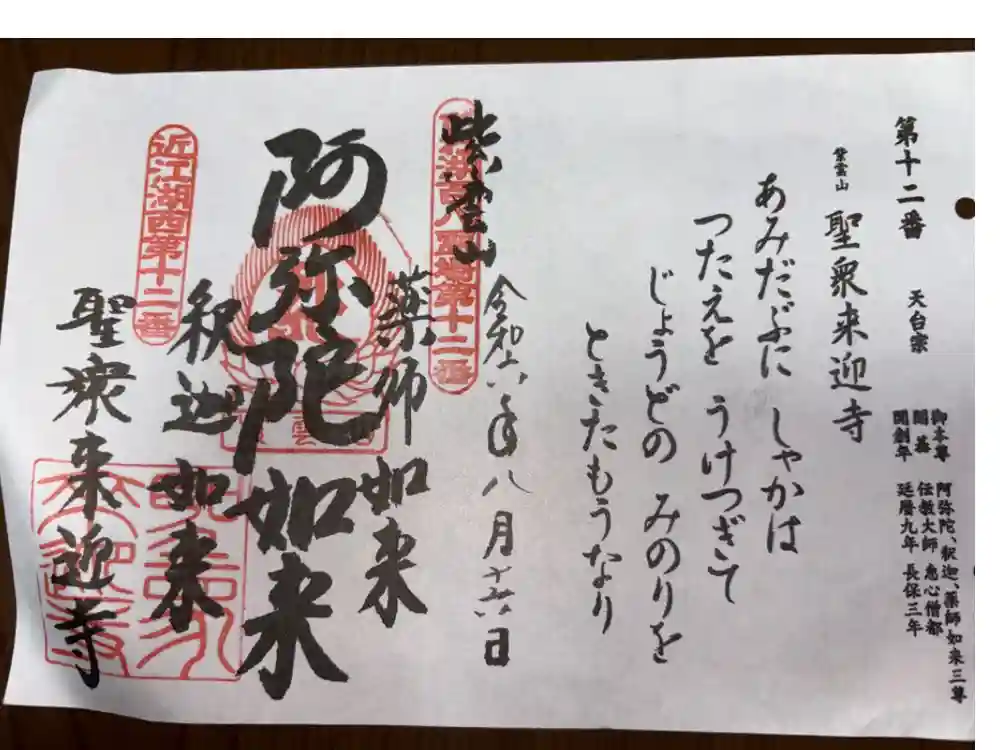 第十二番 天台宗
御本尊 阿弥陀、釈迦、薬師如来三尊
開基 伝教大師 恵心僧都
開創年 延暦九年 長保三年
紫雲山 聖衆来迎寺
あみだぶに しゃかは
つたえを うけつぎて
じょうどの みのりを
ときたもうなり
令和六年八月十六日
紫雲山
薬師如来
阿弥陀如来
釈迦如来
近江湖西第十二番
聖衆来迎寺